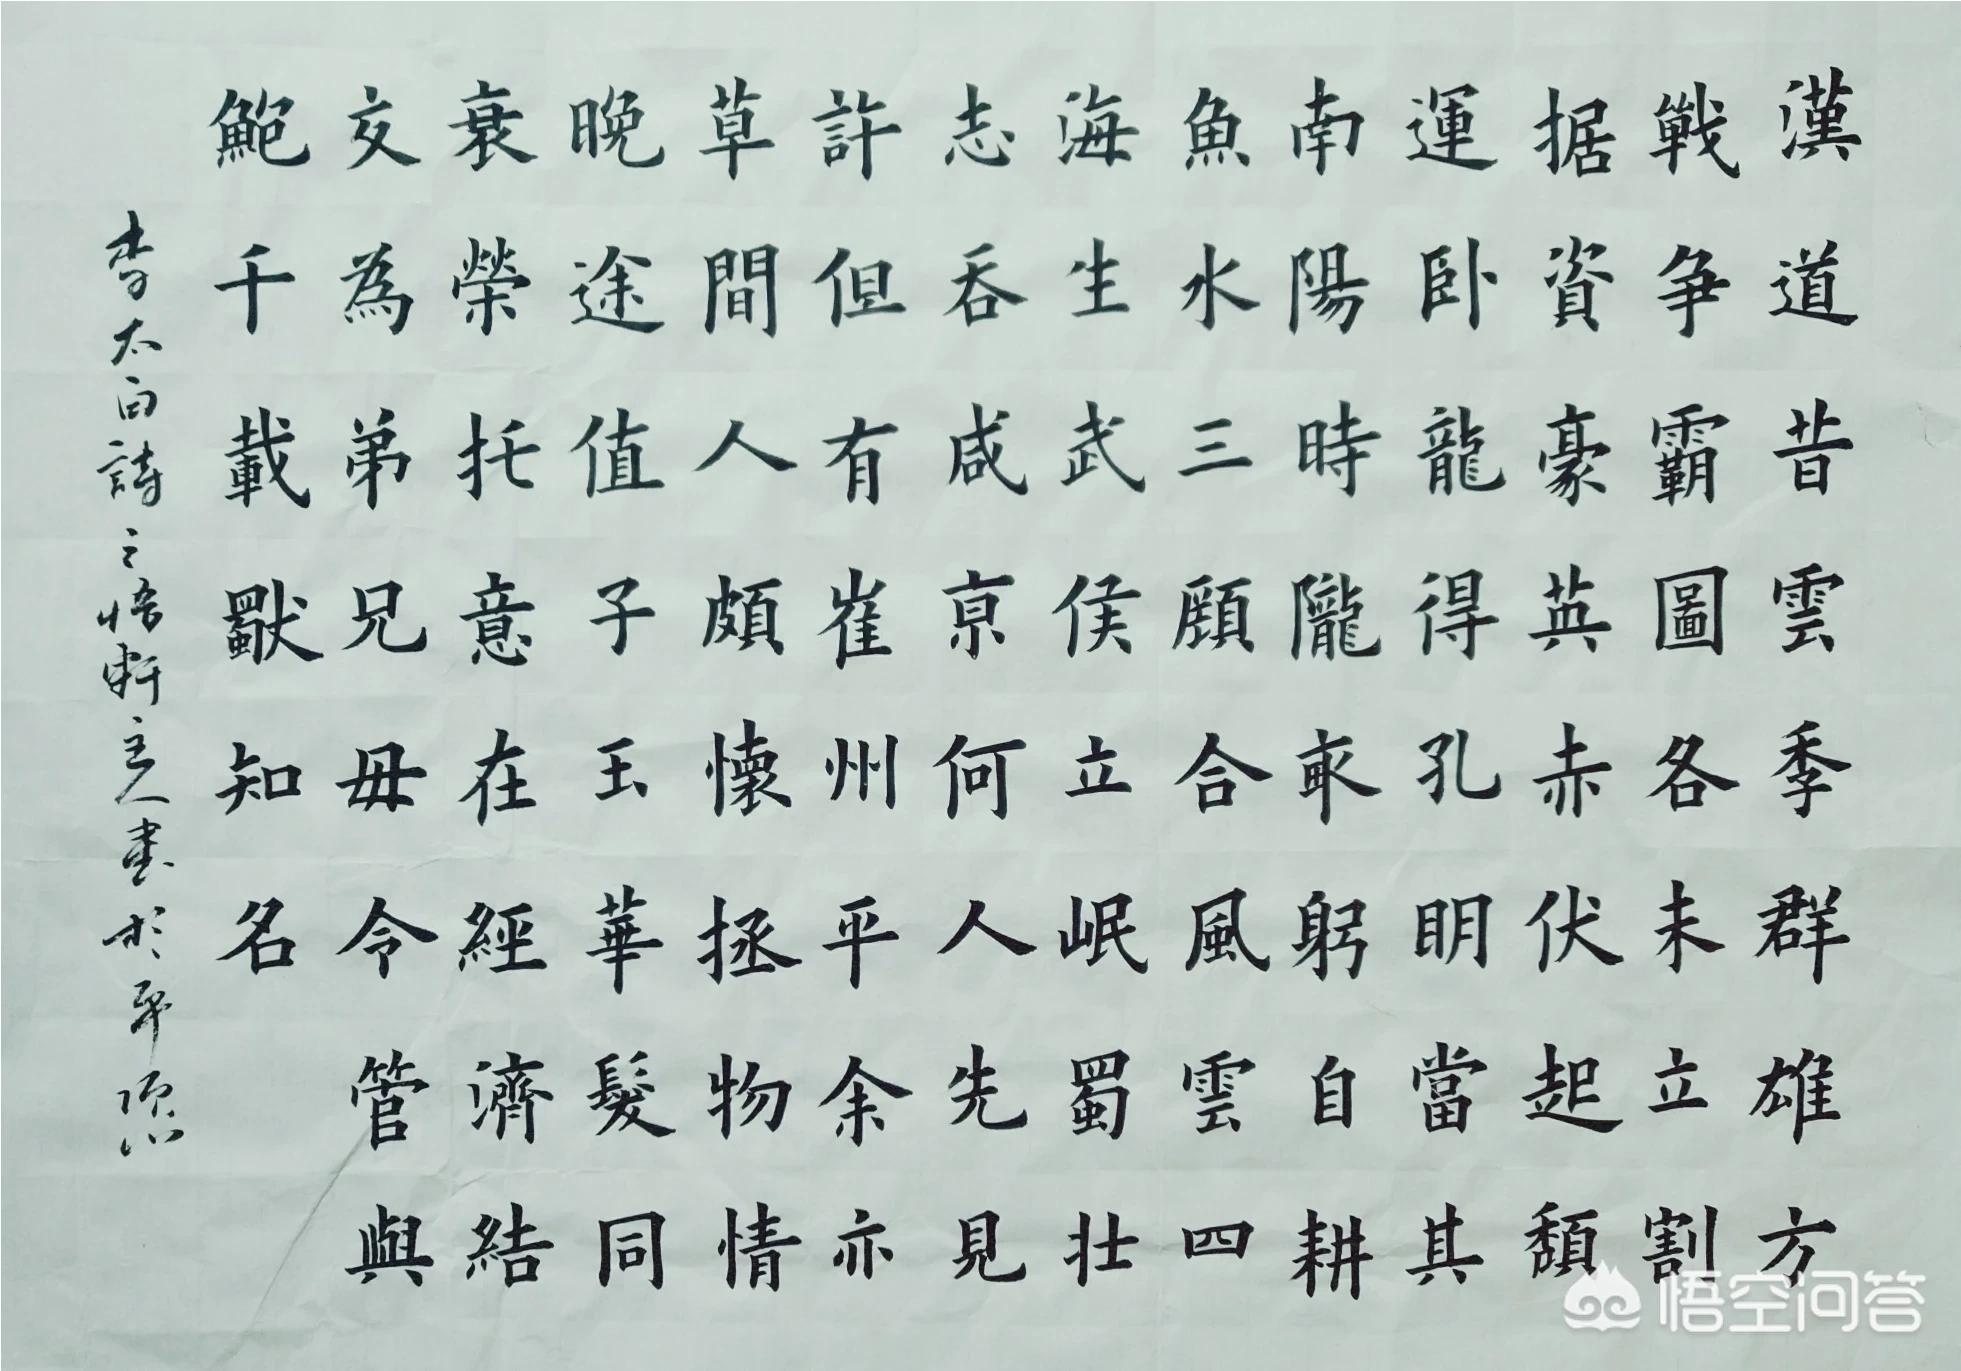 漢道昔雲季群雄方
戰争霸圖各未立割
据資豪英赤伏起頹
運卧龍得孔明當其
南陽時隴畝躬自耕
魚水三顧合風雲四
海生武侯立岷蜀壯
志吞咸京何人先見
許但有崔州平余亦
草間人頗懷拯物情
晚途值子玉華髮同
衰榮托意在經濟結
交為弟兄毋令管與
鮑千載獨知名
李太白詩之悟軒主人書於平頂山
悟空问答